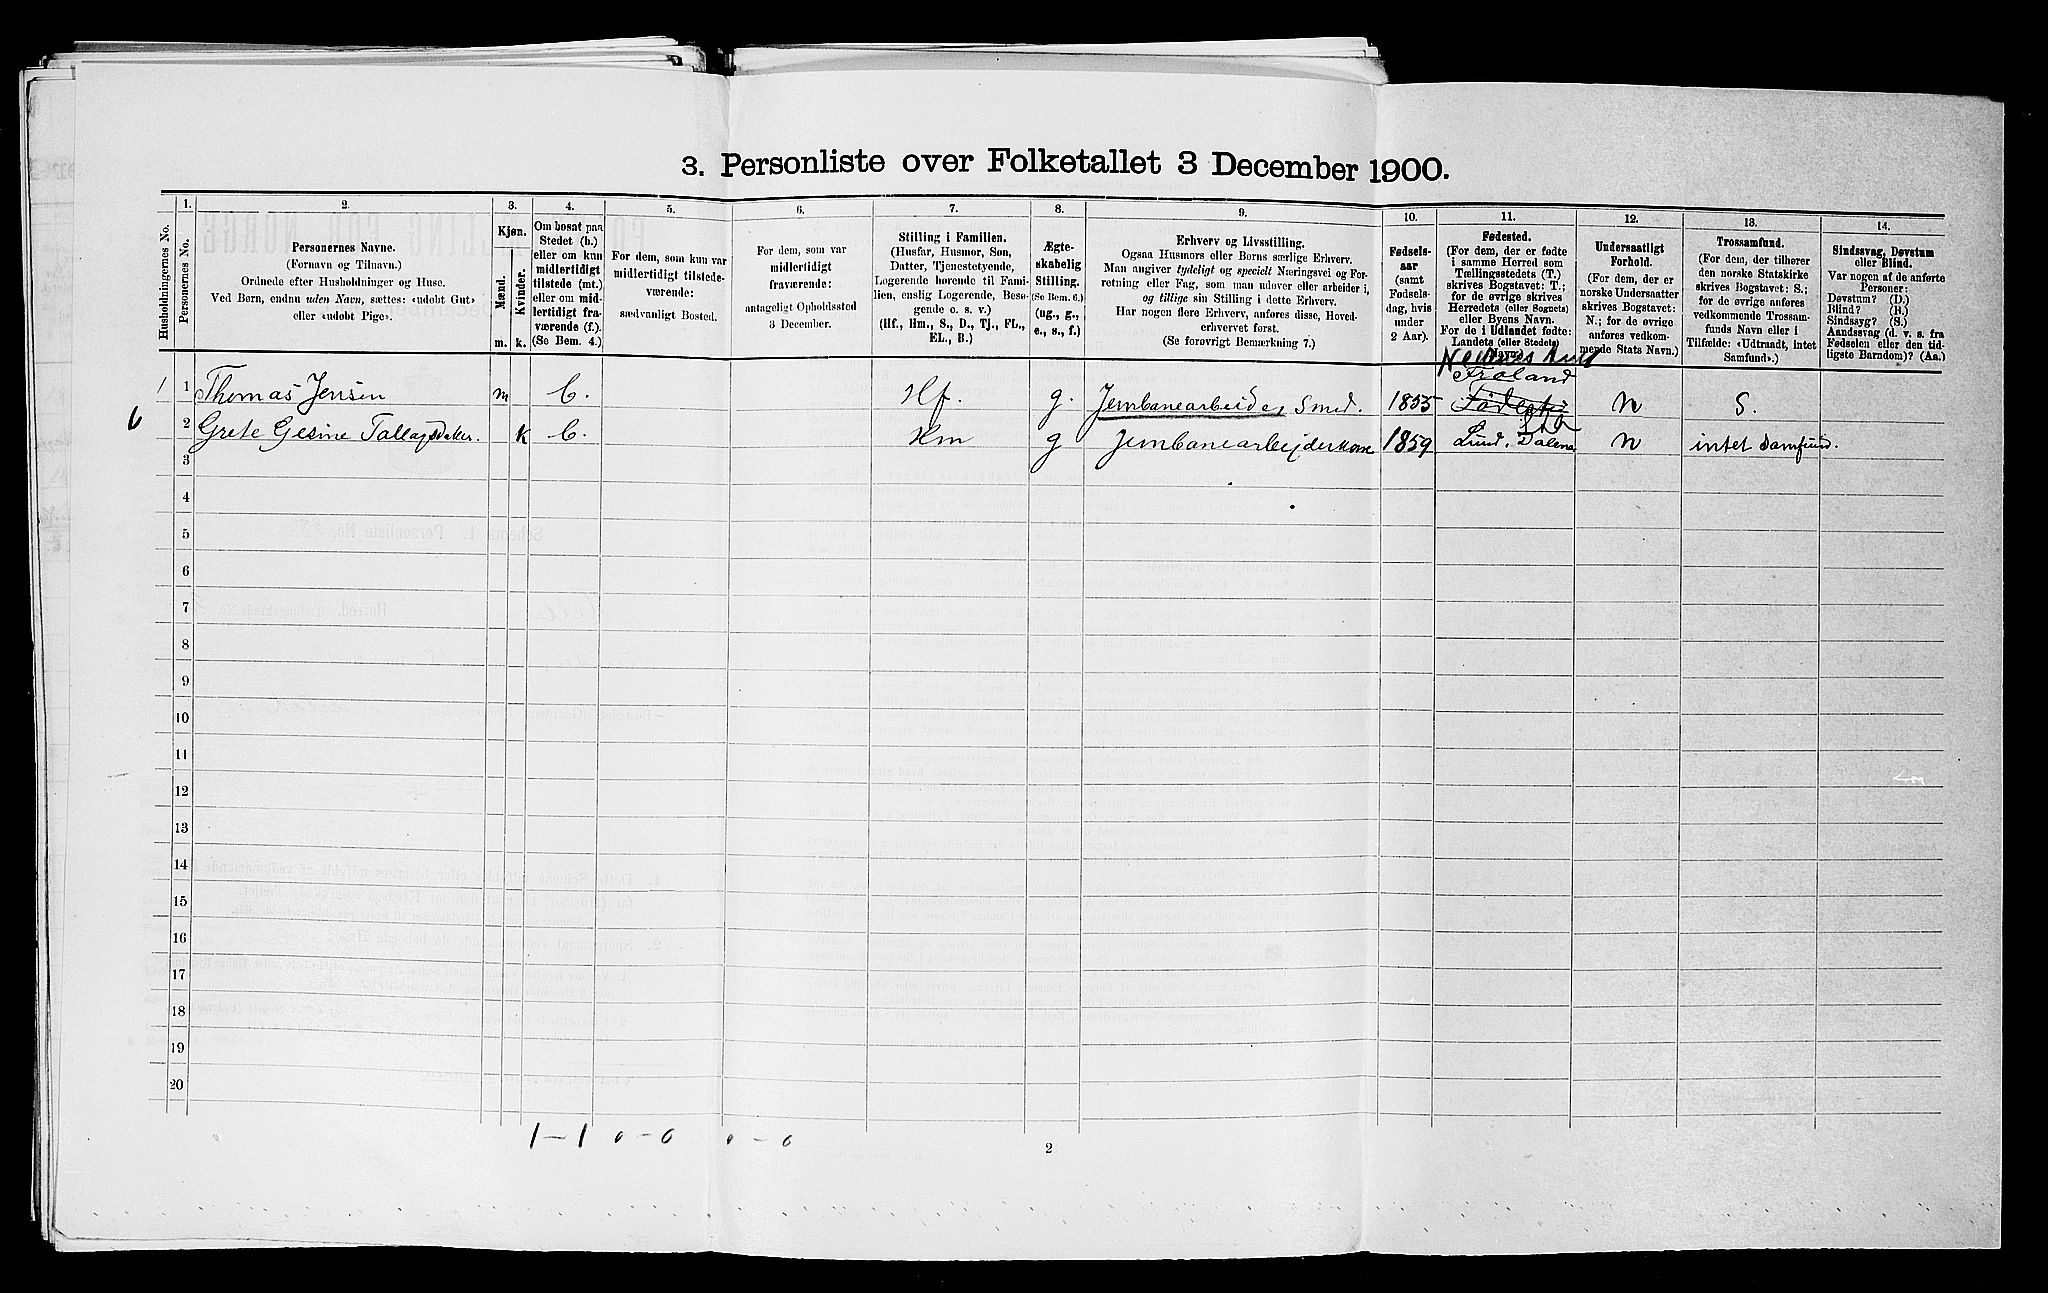 3. Personliste over Folketallet 3 December 1900.
1. 2. 3. 4. 5. 6. 7. 8. 9. 10. 11. 12. 13. 14.
Husholdningernes No.
Personernes No.
Personernes Navne.
(Fornavn og Tilnavn.)
Ordnede efter Husholdninger og Huse.
Ved Børn, endnu uden Navn, sættes: «udøbt Gut»
eller «udøbt Pige».
Kjøn.
Mænd.
Kvinder.
m. k.
Om bosat paa
Stedet (b.)
eller om kun
midlertidigt
tilstede (mt.)
eller om mid-
lertidigt fra-
værende (f.).
(Se Bem. 4.)
For dem, som kun var
midlertidigt tilstede-
værende:
sædvanligt Bosted.
For dem, som var
midlertidigt
fraværende:
antageligt Opholdssted
3 December.
Stilling i Familien.
(Husfar, Husmor, Søn,
Datter, Tjenestetyende,
Logerende hørende til Fami-
lien, enslig Logerende, Besø-
gende o. s. v.)
(Hf., Hm., S., D., Tj., FL.,
EL., B.)
Ægte-
skabelig
Stilling.
(Se Bem. 6.)
(ug., g.,
e., s., f.)
Erhverv og Livsstilling.
Ogsaa Husmors eller Børns særlige Erhverv.
Man angiver tydeligt og specielt Næringsvei og For-
retning eller Fag, som man udøver eller arbeider i,
og tillige sin Stilling i dette Erhverv.
Har nogen flere Erhverv, anføres disse, Hoved-
erhvervet først.
(Se forøvrigt Bemærkning 7.)
Fødsels-
aar
(samt
Fødsels-
dag, hvis
under
2 Aar).
Fødested.
(For dem, der er fødte
i samme Herred som
Tællingsstedets (T.)
skrives Bogstavet: T.;
for de øvrige skrives
Herredets (eller Sognets)
eller Byens Navn.
For de i Udlandet fødte:
Landets (eller Stedets)
Navn.)
Undersaatligt
Forhold.
(For dem, der er
norske Undersaatter
skrives Bogstavet:
N.; for de øvrige
anføres vedkom-
mende Stats Navn.)
Trossamfund.
(For dem, der tilhører
den norske Statskirke
skrives Bogstavet: S.;
for de øvrige anføres
vedkommende Trossam-
funds Navn eller i
Tilfælde: «Udtraadt, intet
Samfund».)
Sindssvag, Døvstum
eller Blind.
Var nogen af de anførte
Personer:
Døvstum? (D.)
Blind? (B.)
Sindssyg? (S.)
Aandssvag (d. v. s. fra
Fødselen eller den tid-
ligste Barndom)? (Aa.)
Froland
1 1 Thomas Jensen m b. Hf. g. Jernbanearbeider Smed. 1855 N S.
6
2 Grete Gesine k b. Hm g Jernbanearbejderkone 1859 Lund. Dalene N intet samfund.
3
4
5
6
7
8
9
10
11
12
13
14
15
16
17
18
19
20
1-1 0-0 0-0
2